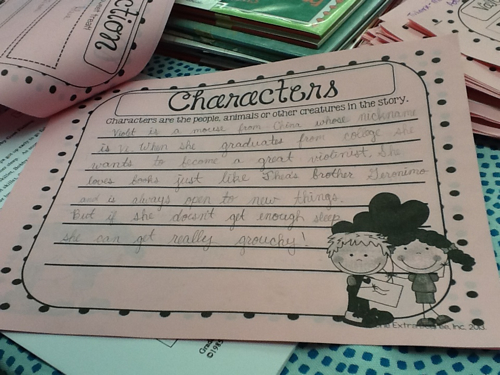 Characters
Characters are the people, animals or other creatures in the story.
Violet is a mouse from China whose nickname
is Vi. When she graduates from college she
wants to become a great violinist. She
loves books just like Thea's brother Geronimo
and is always open to new things.
But if she doesn't get enough sleep
she can get really grouchy!
Inc. 201
©198